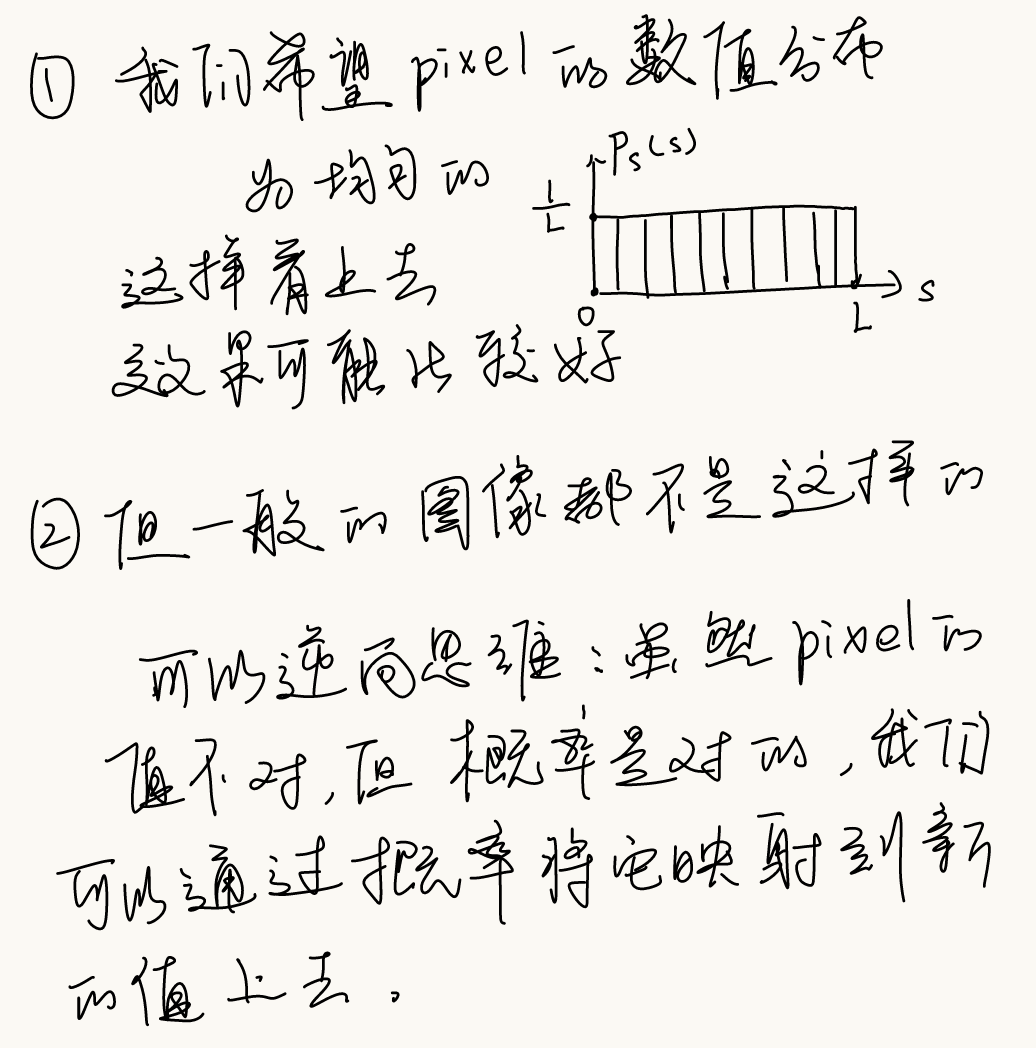 ① 我们希望 pixel 的数值分布
为均匀的
Ps(s)
1/L
0
L
s
这样看上去
效果可能比较好
② 但一般的图像都不是这样的
可以逆向思维：虽然 pixel 的
值不对，但概率是对的，我们
可以通过概率将它映射到新
的值上去。